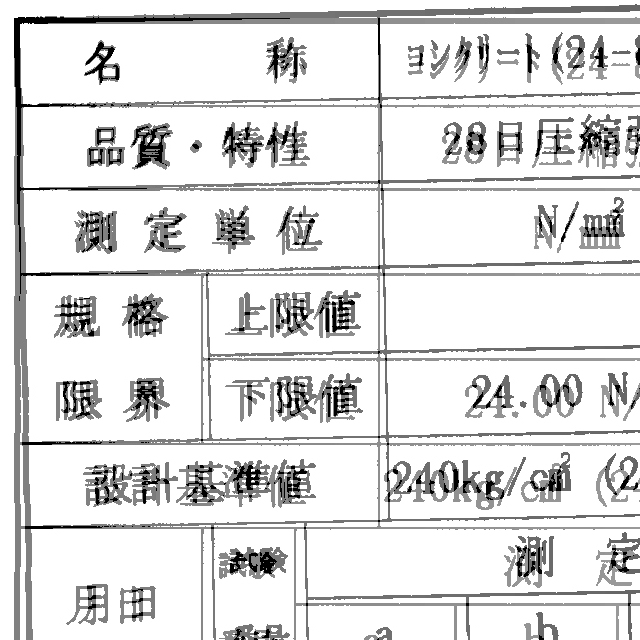 名称 コンクリート(24-8
品質・特性 28日圧縮強
測定単位 N/mm²
規格 上限値
限界 下限値 24.00 N/
設計基準値 240kg/cm² (2
試験 測 定
月日
番号 a b